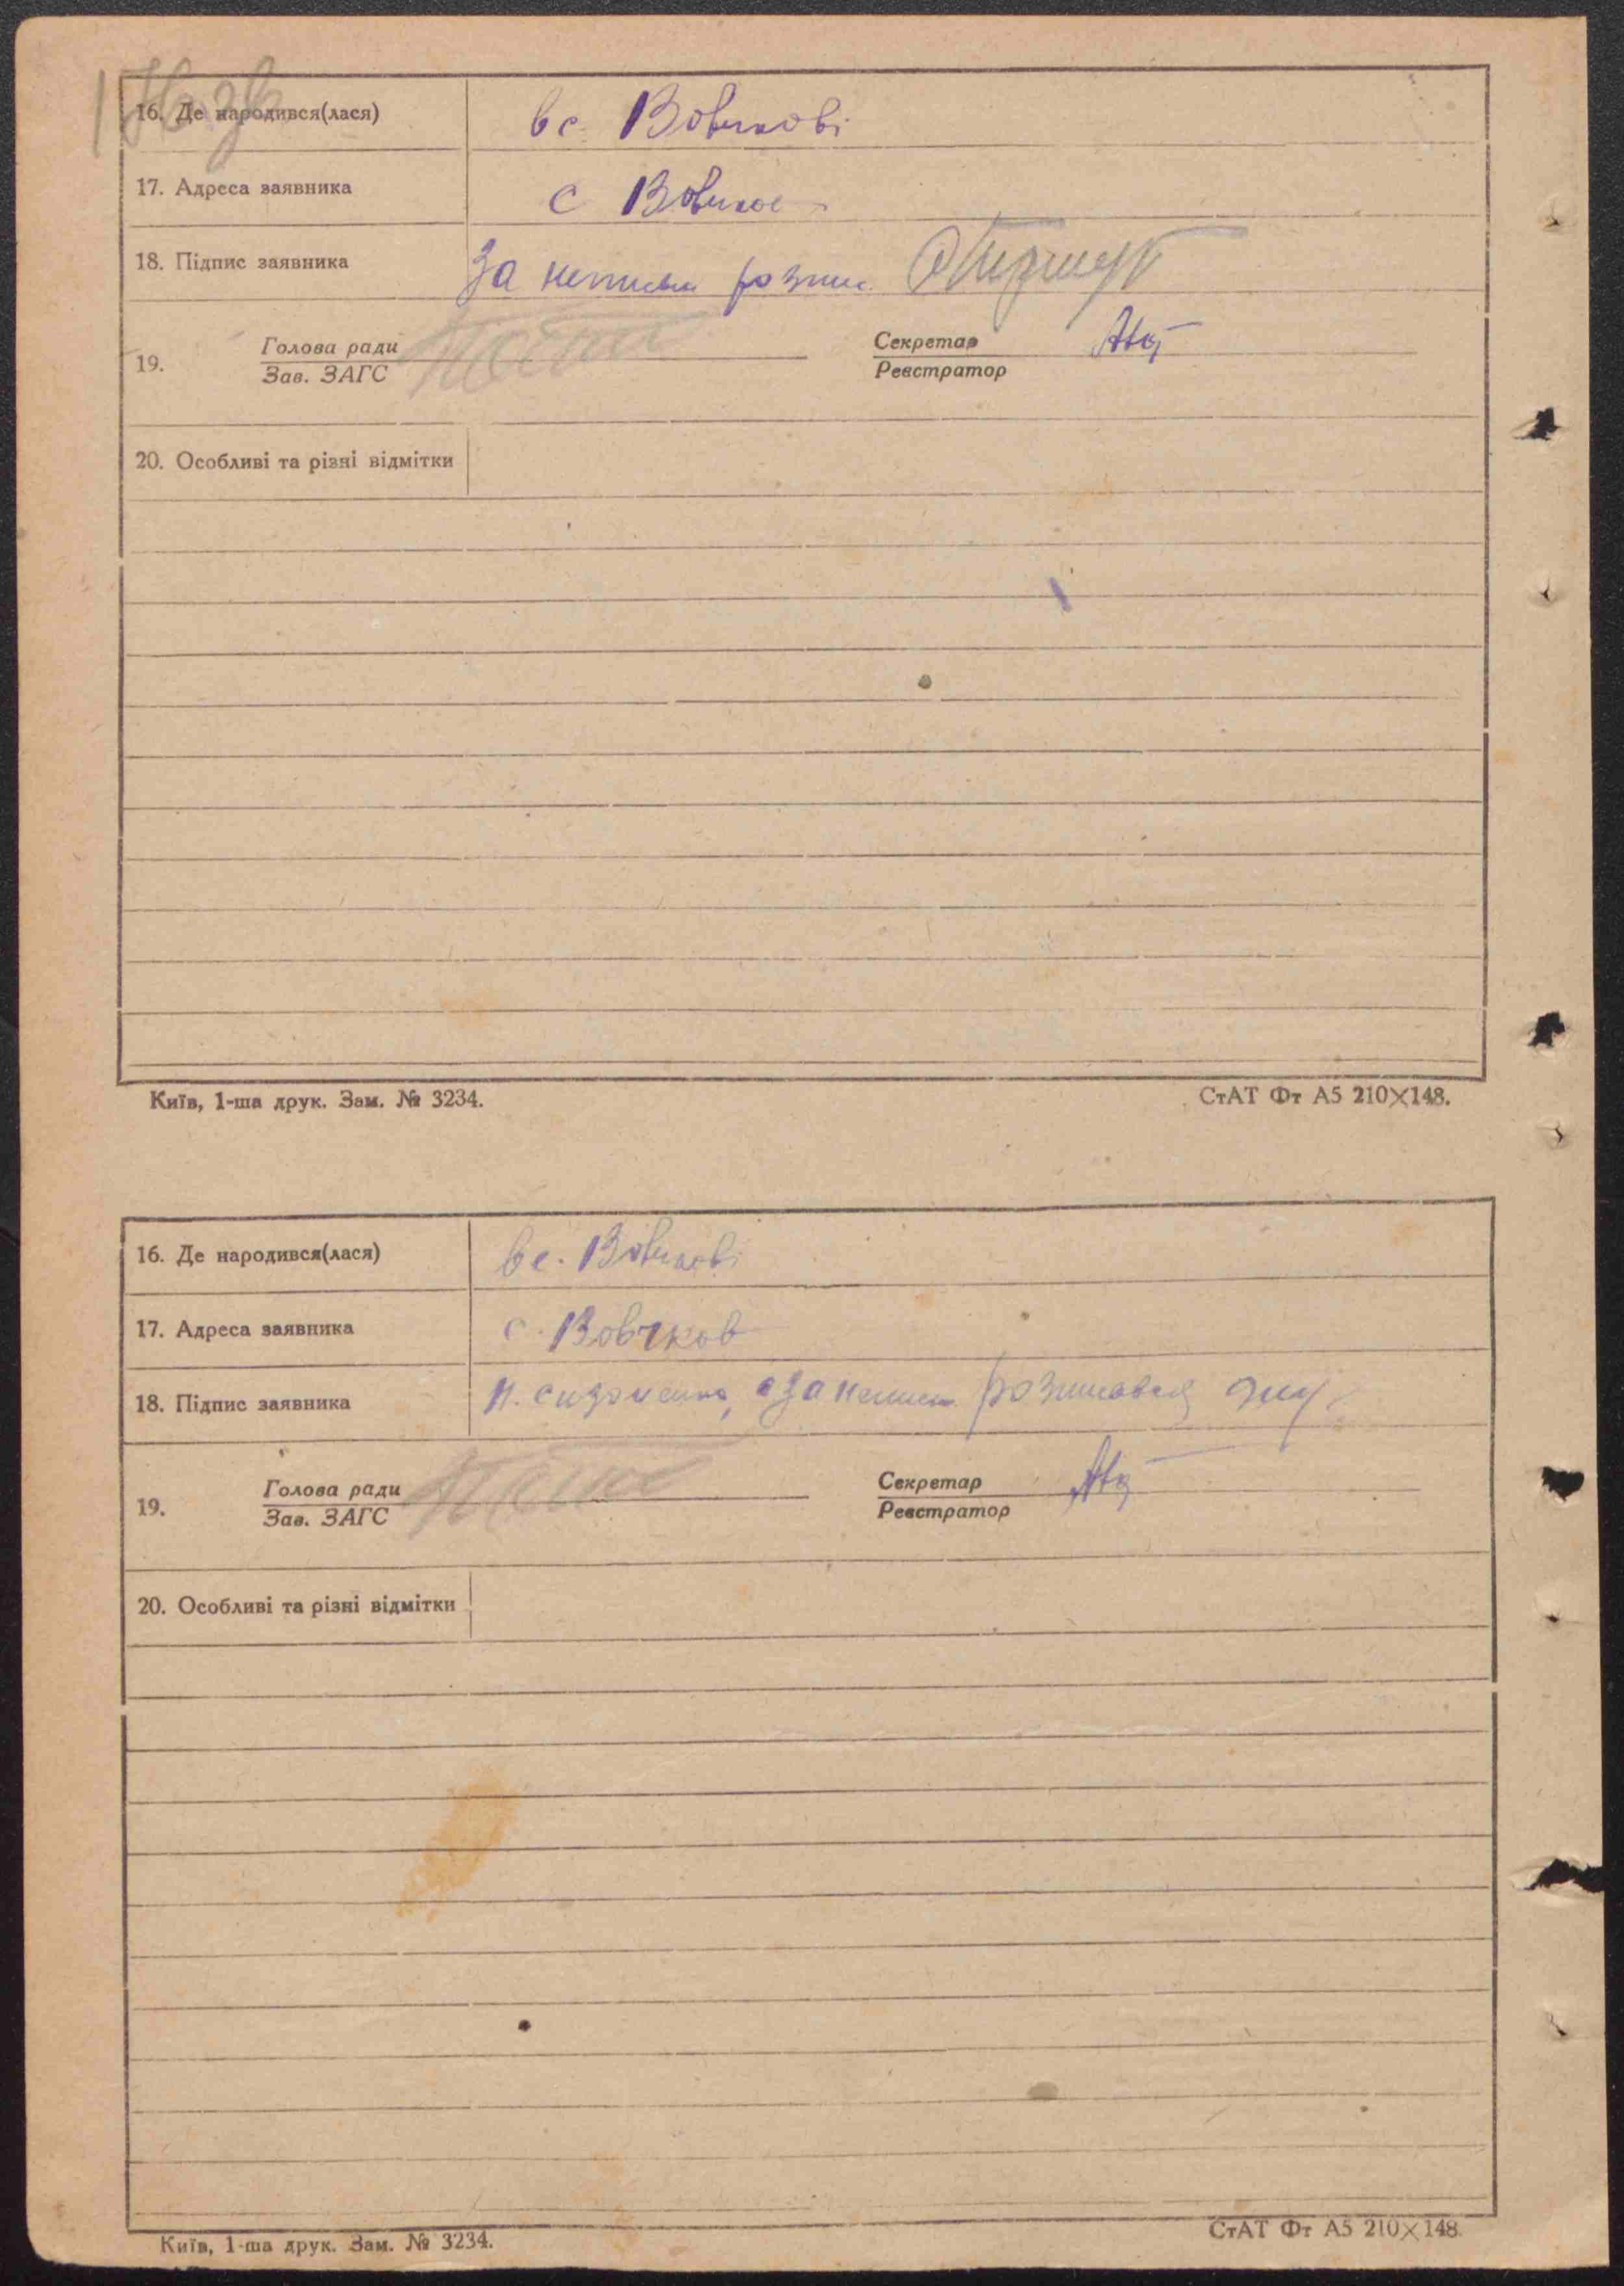 16. Де народився(лася) в с. Вовчкові
17. Адреса заявника с Вовчков
18. Підпис заявника За неписьм розпис.
19. Голова ради Секретар
Зав. ЗАГС Реєстратор
20. Особливі та різні відмітки
Київ, 1-ша друк. Зам. № 3234. СтАТ Фт А5 210×148.
16. Де народився(лася) в с. Вовчкові
17. Адреса заявника с. Вовчков
18. Підпис заявника за розписався
19. Голова ради Секретар
Зав. ЗАГС Реєстратор
20. Особливі та різні відмітки
Київ, 1-ша друк. Зам. № 3234. СтАТ Фт А5 210×148.